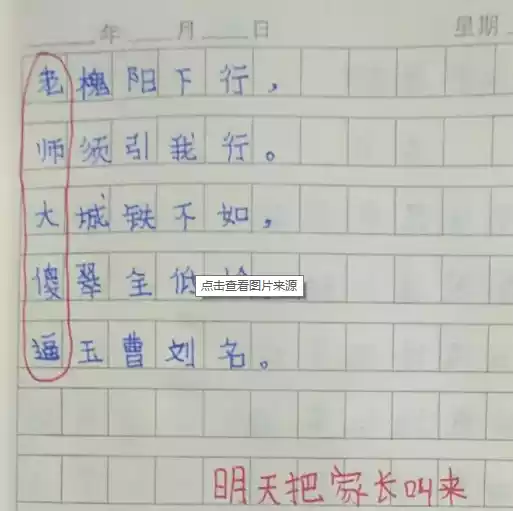 年 月 日 星期
老槐阳下行，
师须引我行。
大城铁不如，
傻翠全低
点击查看图片来源
逼玉曹刘名。
明天把家长叫来